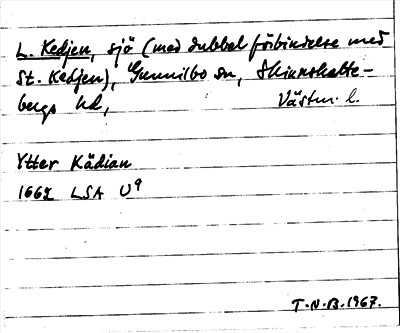 L. Kedjen, sjö (med dubbel förbindelse med
St. Kedjen), Gunnilbo sn, Skinnskatte-
bergs hd, Västm. l.
Ytter Kädian
1667 LSA U9
T.N.B. 1967.